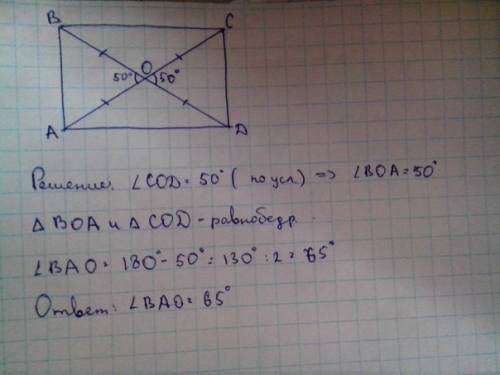 B C
50° O 50°
A D
Решение. ∠COD = 50° (по усл.) => ∠BOA = 50°
△ BOA и △ COD - равнобедр.
∠BAO = 180° - 50° = 130° : 2 = 65°
Ответ: ∠BAO = 65°